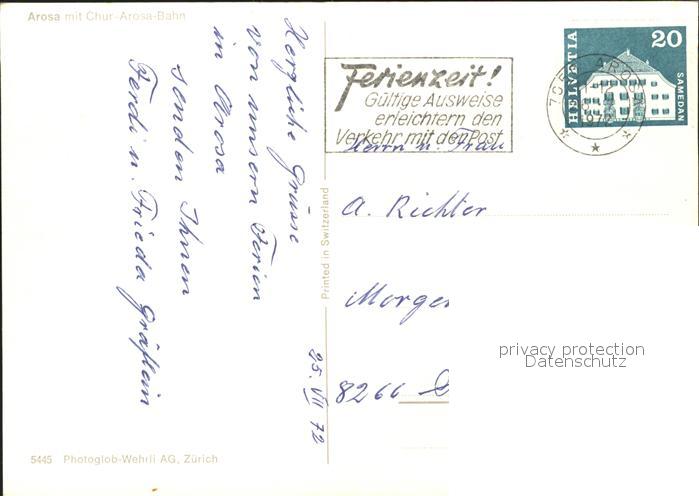 Arosa mit Chur-Arosa-Bahn
Herzliche Grüsse
von unsern Ferien
in Arosa
senden Ihnen
Ferdi u. Frieda Gräflein
25. VII 72
5445 Photoglob-Wehrli AG, Zürich
Printed in Switzerland
Ferienzeit!
Gültige Ausweise
erleichtern den
Verkehr mit der Post
HELVETIA
20
SAMEDAN
AROSA
Herrn u. Frau
A. Richter
Morgen
8266
privacy protection
Datenschutz